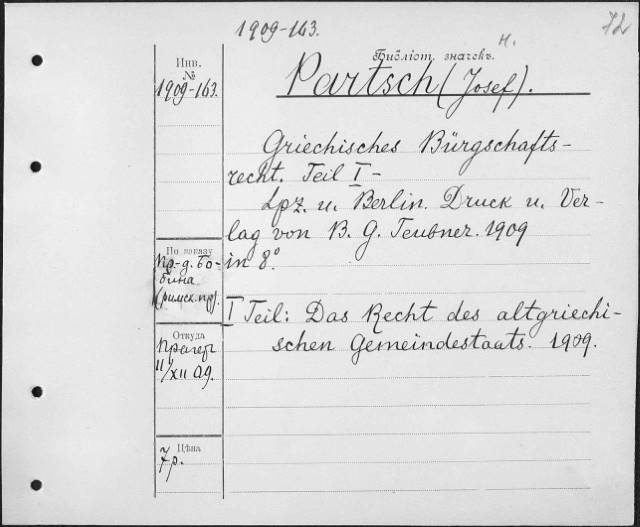 1909-163.
72
Инв.
№
1909-163.
Библіот. значекъ.
н.
Partsch (Josef).
Griechisches Bürgschafts-
recht. Teil I -
Lpz. u. Berlin. Druck u. Ver-
lag von B. G. Teubner. 1909
in 8°.
По заказу
пр-д. Бо-
бина
(римск. пр).
I Teil: Das Recht des altgriechi-
schen Gemeindestaats. 1909.
Откуда
Прагер
11/XII 09.
Цѣна
7р.